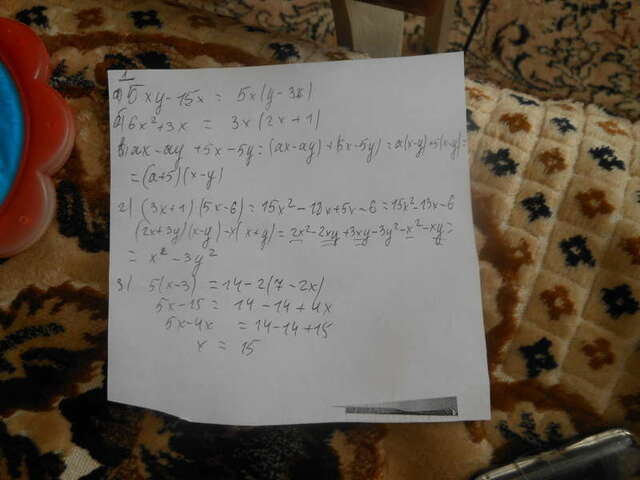 1
а) 5xy - 15x = 5x(y - 3)
б) 6x² + 3x = 3x(2x + 1)
в) ax - ay + 5x - 5y = (ax - ay) + (5x - 5y) = a(x-y) + 5(x-y) =
= (a+5)(x-y)
2) (3x+1)(5x-6) = 15x² - 18x + 5x - 6 = 15x² - 13x - 6
(2x+3y)(x-y) - x(x+y) = 2x² - 2xy + 3xy - 3y² - x² - xy =
= x² - 3y²
3) 5(x-3) = 14 - 2(7 - 2x)
5x - 15 = 14 - 14 + 4x
5x - 4x = 14 - 14 + 15
x = 15